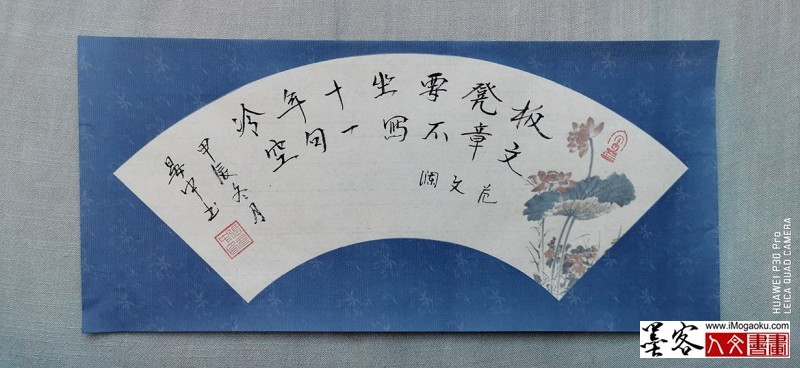 板凳要坐十年冷
文章不写一句空
范文澜
甲辰冬月
中书
HUAWEI P30 Pro
LEICA QUAD CAMERA
www.iMogaoku.com
墨客
人文書畫